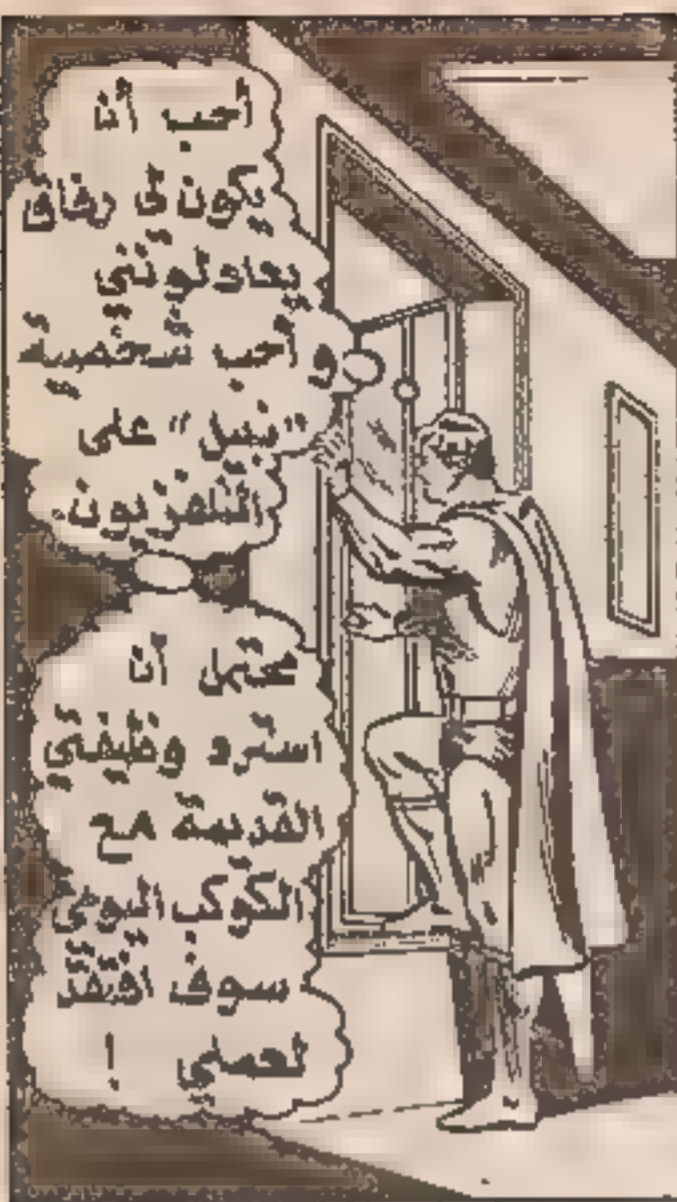 أحب أن
يكون لي رفاق
يعادلونني
و أحب شخصية
"نبيل" على
التلفزيون.
محتمل أن
استرد وظيفتي
القديمة مع
الكوكب اليومي
سوف أفتقد
لعملي !